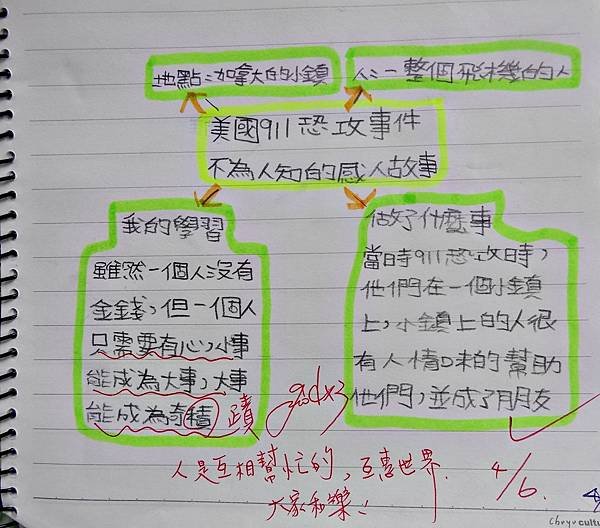 地點:加拿大的小鎮
人:一整個飛機的人
美國911恐攻事件
不為人知的感人故事
我的學習
雖然一個人沒有
金錢,但一個人
只需要有心,小事
能成為大事,大事
能成為奇積
蹟
做了什麼事
當時911恐攻時,
他們在一個小鎮
上,小鎮上的人很
有人情味的幫助
他們,並成了朋友
good x3
人是互相幫忙的,互惠世界.
大家和樂!!
4/6.